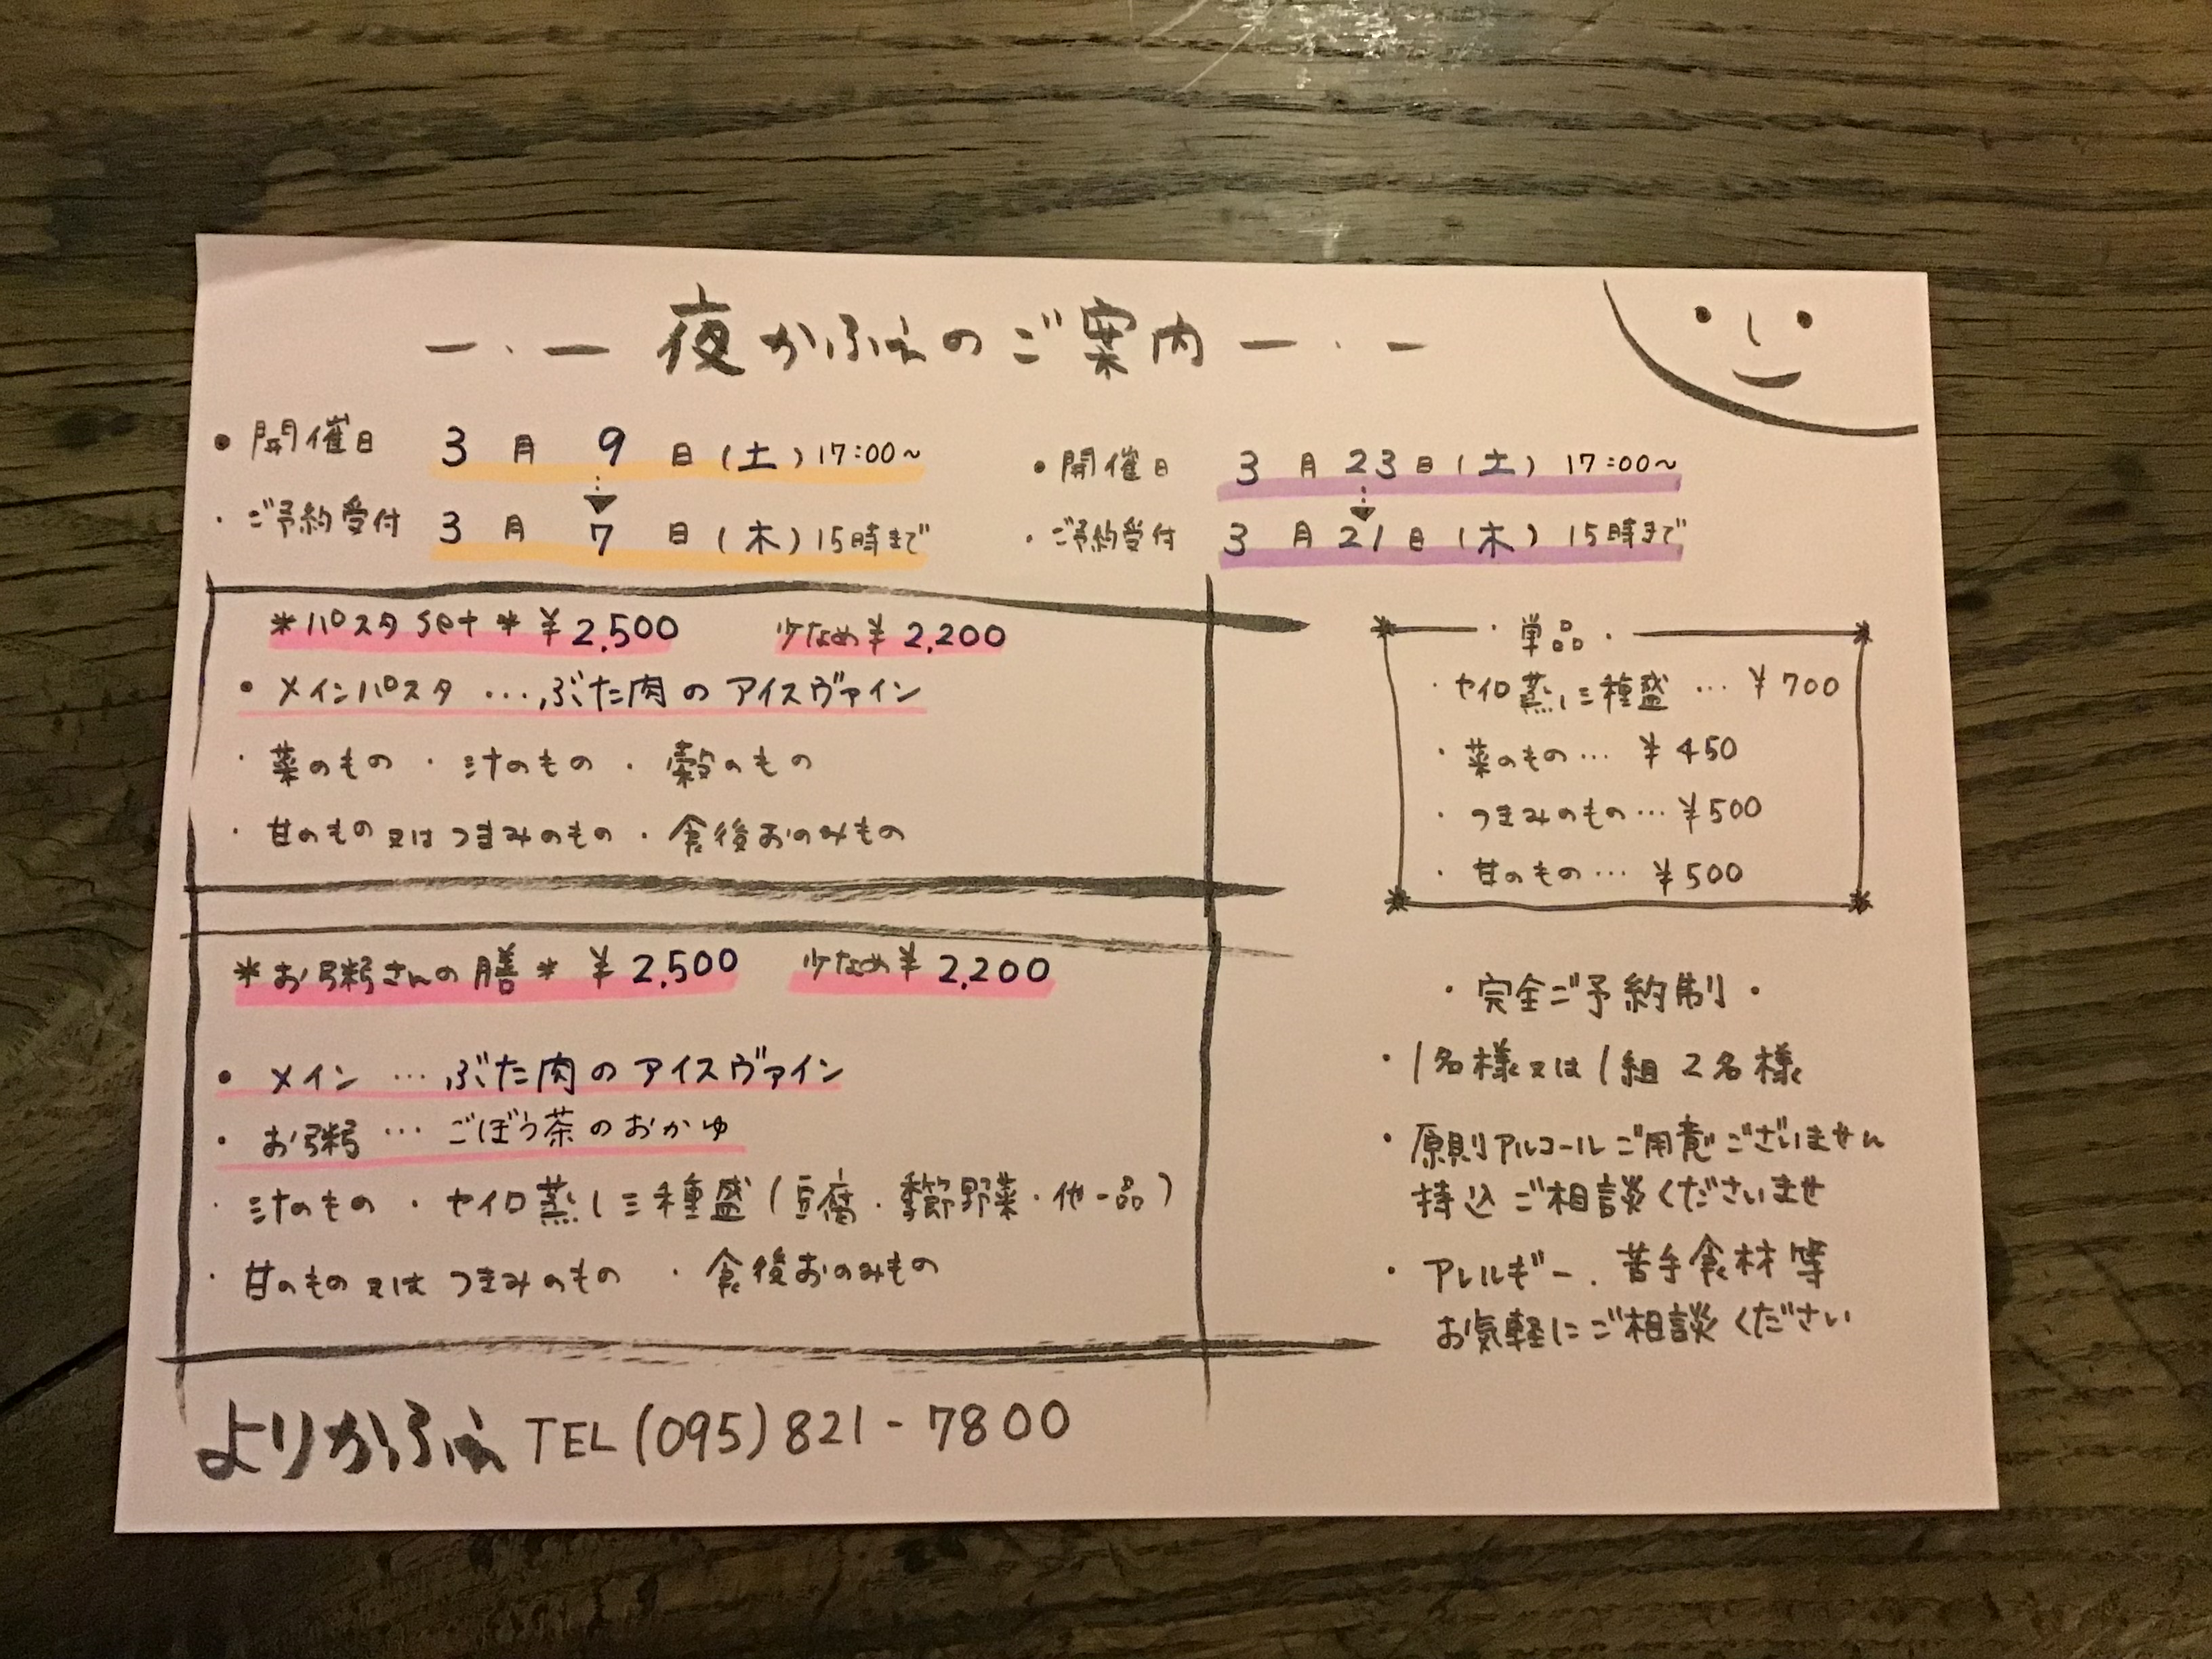 一・一 夜かふぇのご案内 一・一
・開催日 3月9日(土)17:00～
・ご予約受付 3月7日(木)15時まで
・開催日 3月23日(土)17:00～
・ご予約受付 3月21日(木)15時まで
＊パスタset＊¥2,500 少なめ¥2,200
・メインパスタ…ぶた肉のアイスヴァイン
・菜のもの ・汁のもの ・穀のもの
・甘のもの又はつまみのもの ・食後おのみもの
＊お粥さんの膳＊ ¥2,500 少なめ¥2,200
・メイン…ぶた肉のアイスヴァイン
・お粥…ごぼう茶のおかゆ
・汁のもの ・セイロ蒸し三種盛(豆腐・季節野菜・他一品)
・甘のもの又はつまみのもの ・食後おのみもの
・単品・
・セイロ蒸し三種盛…¥700
・菜のもの…¥450
・つまみのもの…¥500
・甘のもの…¥500
・完全ご予約制・
・1名様又は1組2名様
・原則アルコールご用意ございません
持込ご相談くださいませ
・アレルギー．苦手食材等
お気軽にご相談ください
よりかふぇ TEL(095)821-7800